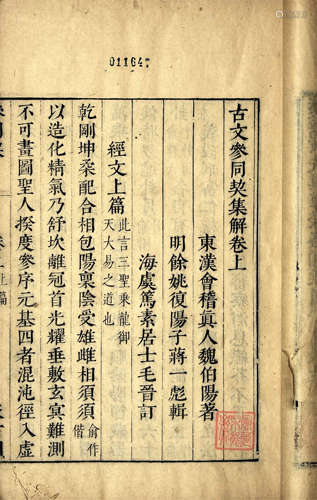 01164
古文參同契集解卷上
東漢會稽真人魏伯陽著
明餘姚復陽子蔣一彪輯
海虞篤素居士毛晉訂
經文上篇 此言三聖乘龍御天大易之道也
乾剛坤柔配合相包陽稟陰受雄雌相須須俞作偕
以造化精氣乃舒坎離冠首光耀垂敷玄冥難測
不可畫圖聖人揆度參序元基四者混沌徑入虛